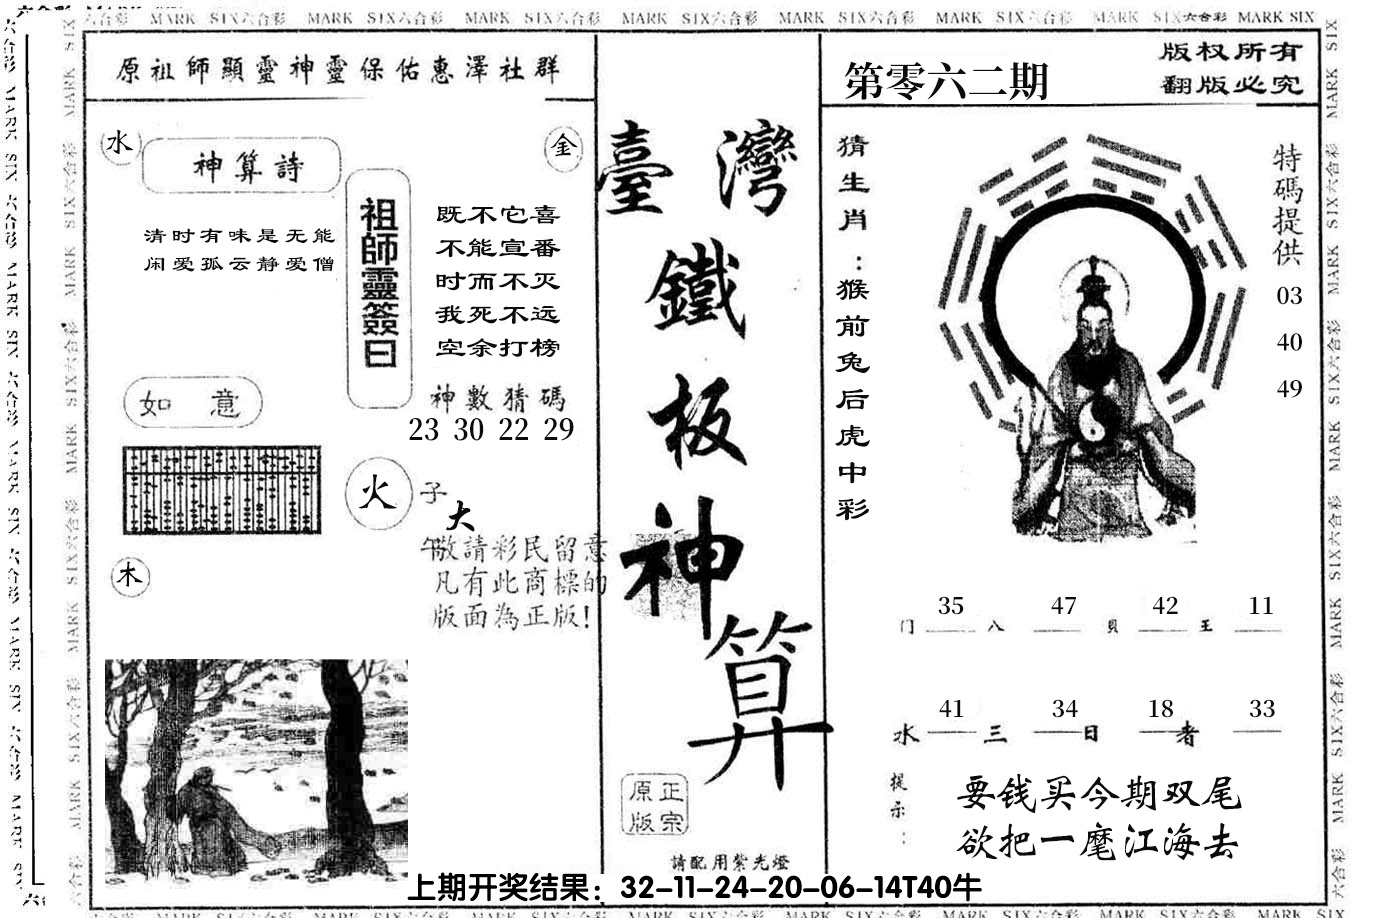 MARK SIX六合彩 MARK SIX六合彩 MARK SIX六合彩 MARK SIX六合彩 MARK SIX六合彩 MARK SIX六合彩 MARK SIX六合彩 MARK SIX六合彩 MARK SIX
原祖師顯靈神靈保佑惠澤社群
水
神算詩
金
清时有味是无能
闲爱孤云静爱僧
祖師靈簽曰
既不它喜
不能宣番
时而不灭
我死不远
空余打榜
神數猜碼
23 30 22 29
如意
火
子
大
午
木
敬請彩民留意
凡有此商標的
版面為正版！
臺灣
鐵
板
神
算
正宗
原版
請配用紫光燈
第零六二期
版权所有
翻版必究
猜生肖：猴前兔后虎中彩
特碼提供
03
40
49
35 47 42 11
门 八 貝 王
41 34 18 33
水 三 日 者
提示：
要钱买今期双尾
欲把一麾江海去
上期开奖结果：32-11-24-20-06-14T40牛